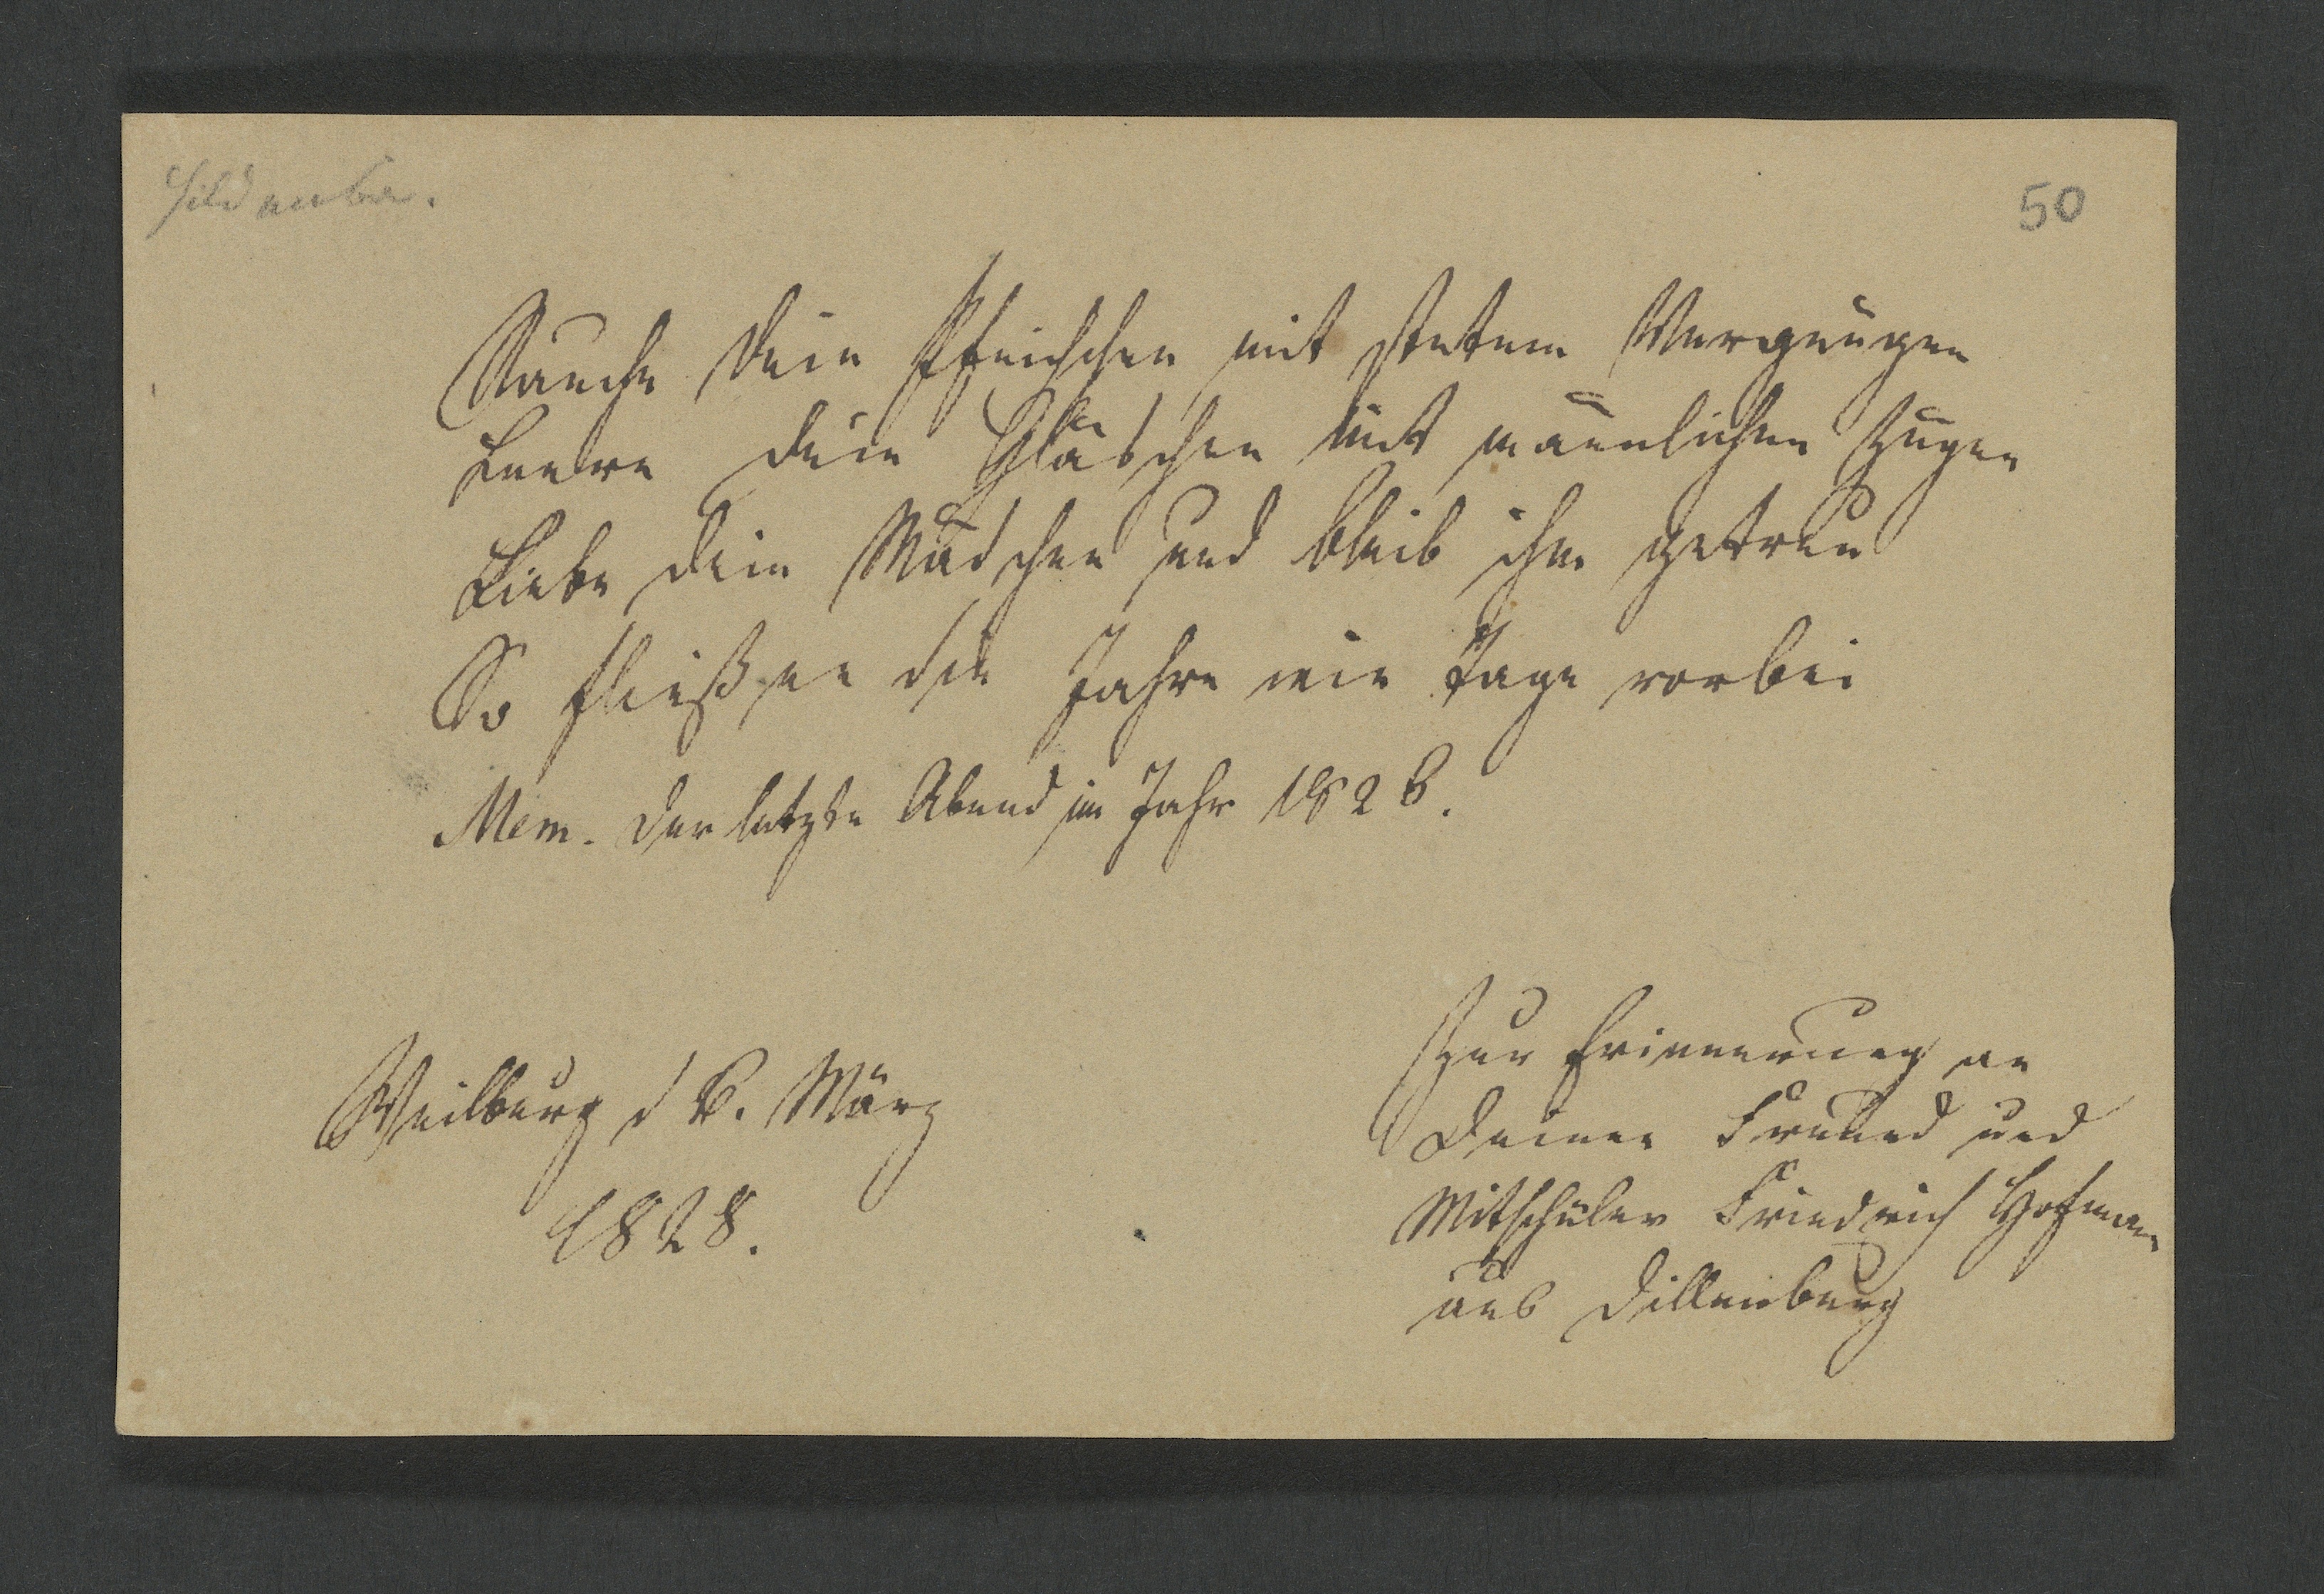 50
Rauche dein Pfeifchen mit stetem Vergnügen
Leere dein Gläschen mit männlichen Zügen
Liebe dein Mädchen und bleib ihm getreu
So fließen die Jahre wie Tage vorbei
Mem. der letzte Abend im Jahr 1828.
Weilburg d 8. März
1828.
Zur Erinnerung an
Deinen Freund und
Mitschüler Friedrich Hofmann
aus Dillenburg